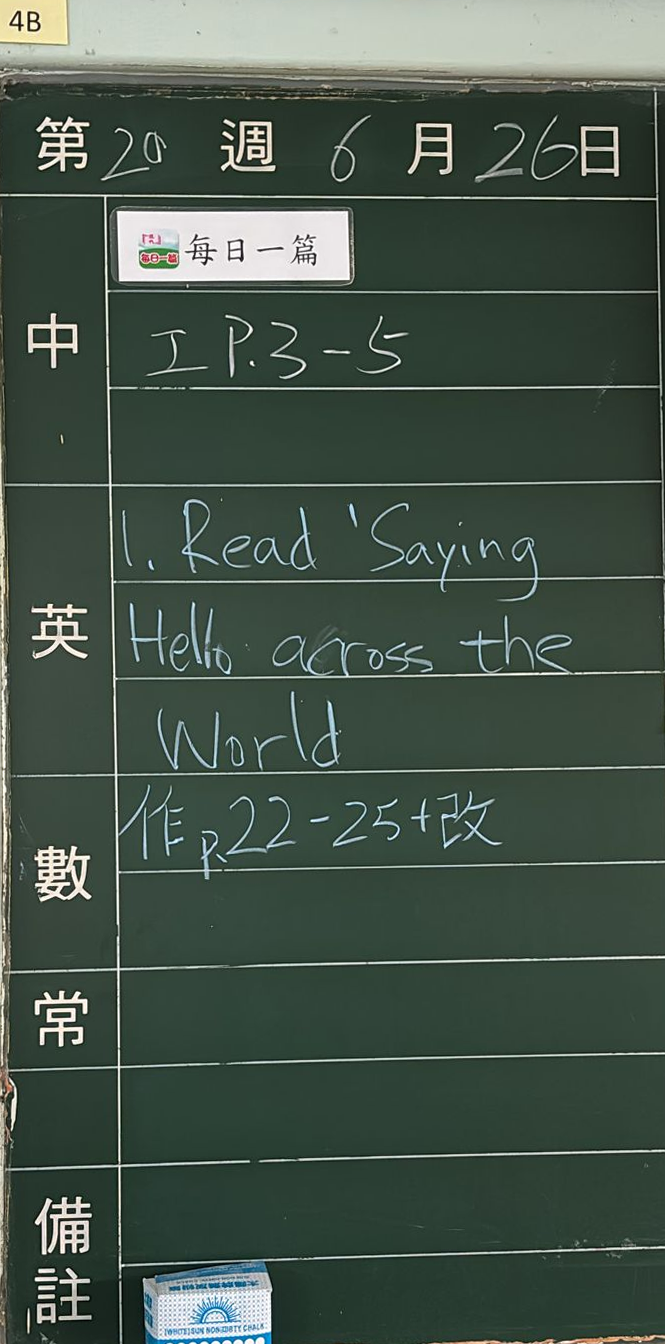 4B
第 20 週 6 月 26 日
中
每日一篇 每日一篇
工 P.3-5
英
1. Read 'Saying
Hello across the
World
數
作 p.22-25+改
常
備註
(WHITE) SUN NON-DIRTY CHALK